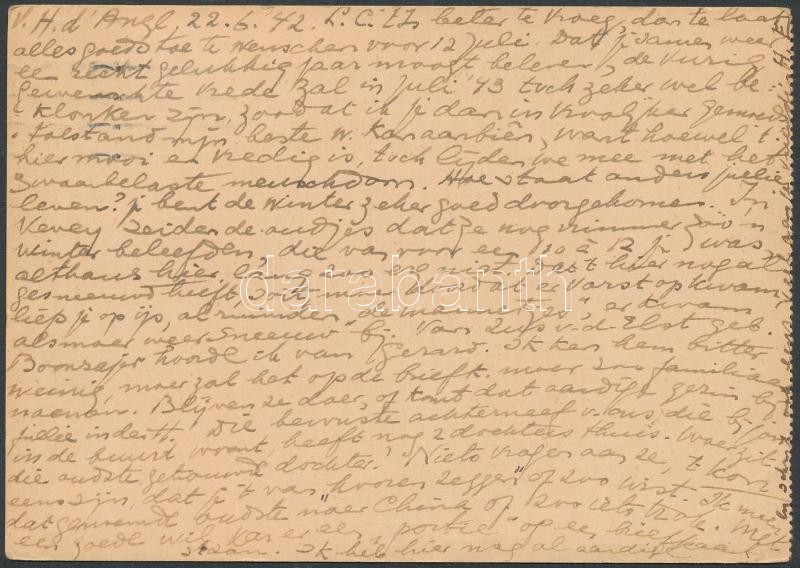 V.H. d'Angl. 22.6.'42. L.C. Is beter te vroeg, dan te laat
alles goeds toe te wenschen voor 12 Juli. Dat je samen weer
een recht gelukkig jaar moogt beleven, de vurig
gewenschte vrede zal in Juli '43 toch zeker wel be-
klonken zijn, zoodat ik je dan in vroolijker gemoeds-
mijn beste w. kan aanbiên, want hoewel 't
hier mooi en vredig is, toch lijden we mee met het
zwaarbelaste menschdom. Hoe staat anders jullie
leven? je bent de winter zeker goed doorgekomen. In
Vevey zeiden de oudjes dat ze nog nimmer zoo'n
winter beleefden, die van voor een 10 à 12 j. was
althans hier lang zoo erg niet. Dat 't hier nog al
gesneeuwd heeft, maar er vorst op kwam
liep je op ijs, er kwam
alsmaar weer sneeuw bij. Van Zuijs v.d. Elst geb.
Boonzajer hoorde ik van Gerard. Ik ken hem bitter
weinig, maar zal het op de briefk. maar zoo familiaar
noemen. Blijven ze daar, of komt dat aardige gezin bij
jullie in den H. Die bewuste achterneef v. ons, die bij jou
in de buurt woont, heeft nog 2 dochters thuis. Waar zit
die oudste getrouwde dochter? Niets vragen aan ze, 't kon
eens zijn, dat je 't van "hooren zeggen" of zoo wist. Ik meen
dat genoemde oudste naar China of zoo iets trok. Met
een goede wil kan er een "portie" op een briefkaart
staan. Ik heb hier nog al aardig
darabanth